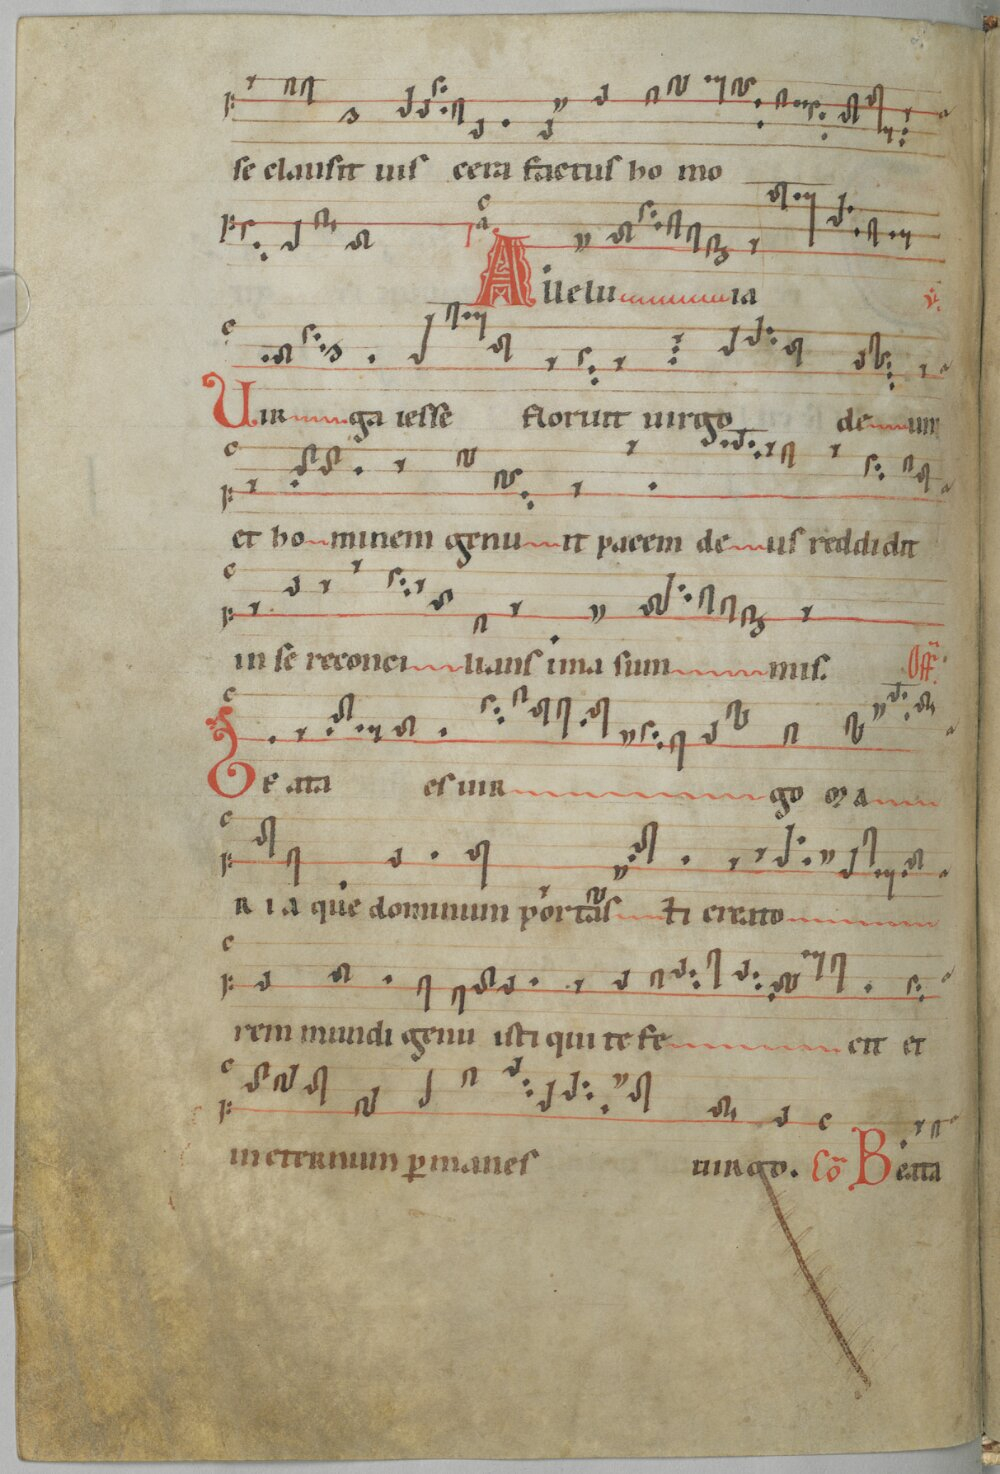 se clausit uis cera factus ho mo
Alleluia ℣.
Uirga iesse floruit uirgo deum
et hominem genuit pacem deus reddidit
in se reconcilians ima summis. Off
Beata es uirgo Ma
ria que dominum portasti creato
rem mundi genuisti qui te fecit et
in eternum ꝑmanes uirgo. Cō Beata